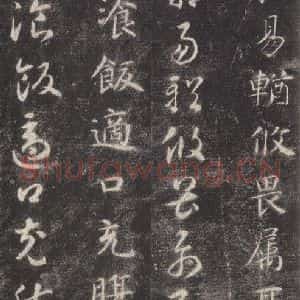 易輶攸畏属耳
易輶攸畏属
湌飯適口充腸
湌飯適口充腸
Shufawang.CN